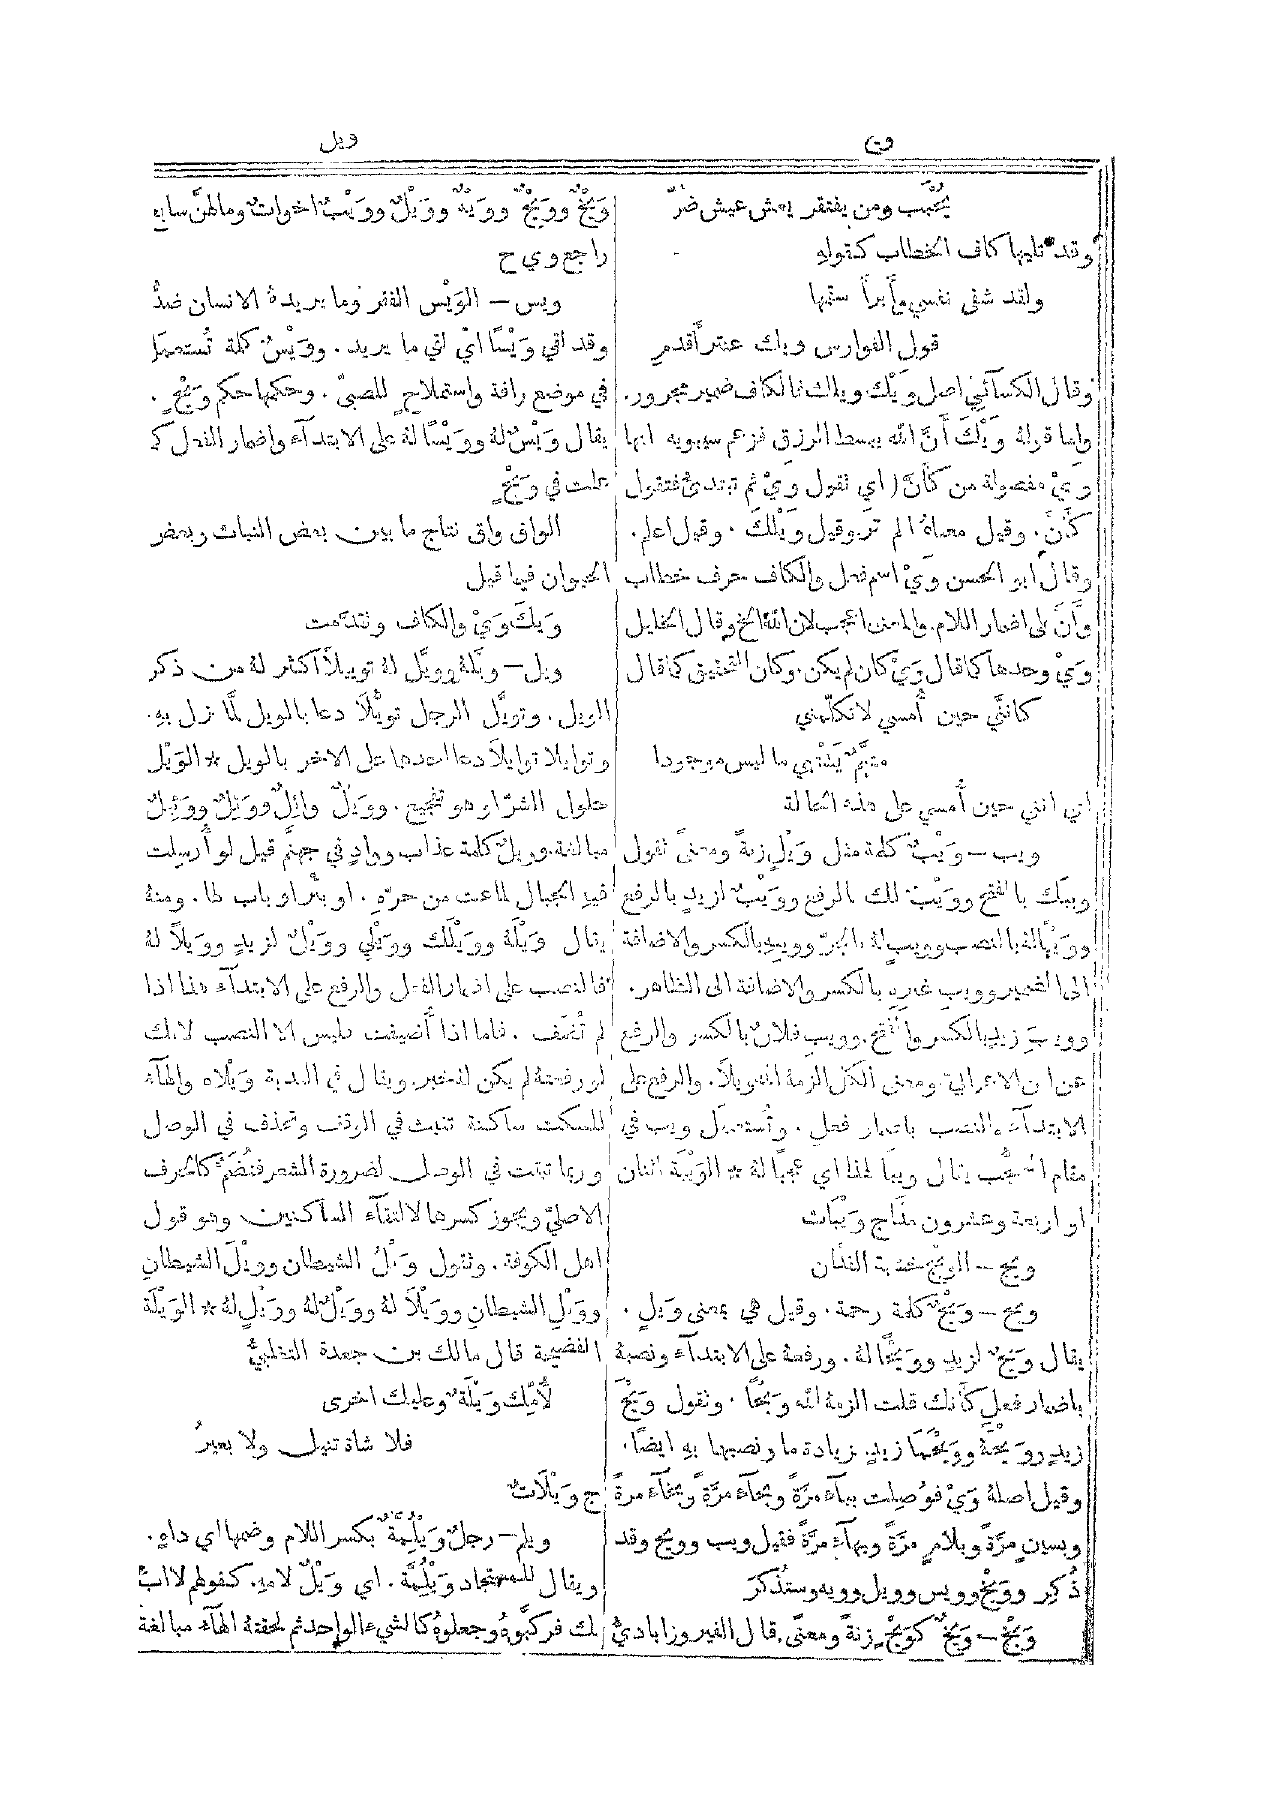 ويل
يُحبَب ومن يفتقر يعش عيش ضرّ
وقد تليها كاف الخطاب كقولهِ
ولقد شفى نفسي وأَبرأَ سقمها
قول الفوارس ويك عنتر أَقدمِ
وقال الكسائيّ اصل وَيْك ويلك فالكاف ضمير مجرور.
واما قولهُ وَيْكَ أَنَّ الله يبسط الرزق فزعم سيبويه انها
وَيْ مفصولة من كَأَنَّ اي تقول وَيْ ثم تبتدئُ فتقول
كأَنَّ. وقيل معناهُ الم ترَ وقيل وَيْلَكَ. وقيل اعلم.
وقال ابو الحسن وَيْ اسم فعل والكاف حرف خطاب
وأَنَّ على اضمار اللام والمعنى اعجب لان الله الخ وقال الخليل
وَيْ وحدها كما قال وَيْ كان لم يكن. وكان للتحقيق كما قال
كانني حين أُمسي لا تكلّمني
متيَّم يشتهي ما ليس موجودا
اي انني حين أُمسي على هذه الحالة
ويب – وَيْبَ كلمة مثل وَيْل زنةً ومعنىً تقول
وَيبَك بالفتح ووَيْبٌ لك بالرفع ووَيْبٌ لزيدٍ بالرفع
ووَيْبًا لهُ بالنصب وويبٍ لهُ بالجرّ وويبِهِ بالكسر والاضافة
الى الضمير وويبِ غيرِهِ بالكسر والاضافة الى الظاهر.
وويبَِ زيدٍ بالكسر والفتح. وويبِ فلان بالكسر والرفع
عن ابن الاعرابيّ. ومعنى الكل الزمهُ الله ويلًا. والرفع على
الابتدآء والنصب باضمار فعل. وتُستعمَل ويب في
مقام التعجُّب يقال ويبًا لهذا اي عجبًا لهُ * الوَيْبَة اثنان
او اربعة وعشرون مدًّا ج وَيْبَات
ويج – الويْج خشبة الفدّان
ويح – وَيْح كلمة رحمة. وقيل هي بمعنى وَيل.
يقال وَيحٌ لزيد ووَيْحًا لهُ. ورفعهُ على الابتدآء ونصبهُ
باضمار فعلٍ كأَنك قلت الزمهُ الله وَيْحًا. وتقول وَيْحَ
زيدٍ ووَيْحَهُ ووَيْحَمَا زيدٍ بزيادة ما ونصبها بهِ ايضًا.
وقيل اصلهُ وَيْ فوُصِلت ببآء مرَّةً وبحآء مرَّةً وبخآء مرةً
وبسينٍ مرَّةً وبلامٍ مرَّةً وبهآء مرَّةً فقيل ويب وويح وقد
ذُكِر ووَيْخ وويس وويل وويه وستُذكَر
وَيْخ – ويْخ كوَيْح زنةً ومعنًى. قال الفيروزاباديّ
وَيْحٌ ووَيْخٌ ووَيْهٌ ووَيْلٌ ووَيْبٌ اخوات وما لهنَّ سابع
راجع وي ح
ويس – الوَيْس الفقر وما يريدهُ الانسان ضدٌّ
وقد لقي وَيْسًا اي لقي ما يريد. ووَيْسُ كلمة تُستعمَل
في موضع رافة واستملاحٍ للصبيّ. وحكمها حكم وَيْحٍ.
يقال وَيْسٌ لهُ ووَيْسًا لهُ على الابتدآء واضمار الفعل كما
علمت في وَيْحٍ
الواق واق نتاج ما بين بعض النبات وبعض
الحيوان فيما قيل
وَيكَ وَيْ والكاف وتقدَّمت
ويل – ويَّلهُ وويَّل لهُ تويِيلًا اكثر لهُ من ذكر
الويل. وتويَّل الرجل تويُّلًا دعا بالويل لمّا نزل بهِ.
وتوايلا توايلًا دعا احدها على الاخر بالويل * الوَيْل
حلول الشرّ او هو تفجيع. ووَيْلٌ وائِلٌ ووَيِلٌ ووَئِلٌ
مبالغة. وويل كلمة عذاب ووادٍ في جهنَّم قيل لو أُرسِلت
فيهِ الجبال لماعت من حرّهِ. او بئر او باب لها. ومنهُ
يقال وَيْلَهُ ووَيْلَك ووَيْلي ووَيْلٌ لزيدٍ وويلًا لهُ
فالنصب على اضمار الفعل والرفع على الابتدآء هذا اذا
لم تُضَف. فاما اذا أُضيفت فليس الا النصب لانك
لو رفعتهُ لم يكن لهُ خبر. ويقال في الندبة وَيْلاه والهآء
للسكت ساكنة تثبت في الوقف وتحذف في الوصل
وربما ثبتت في الوصل لضرورة الشعر فتُضَمّ كالحرف
الاصليّ ويجوز كسرها لالتقآء الساكنين وهو قول
اهل الكوفة. وتقول وَيْلُ الشيطان وويْلَ الشيطانِ
ووَيْلِ الشيطانِ ووَيْلًا لهُ ووَيْلٌ لهُ ووَيْلٍ لهُ * الوَيْلَة
الفضيحة قال مالك بن جعدة التغلبيُّ
لأُمّك وَيْلَةٌ وعليك اخرى
فلا شاة تنيل ولا بعيرُ
ج وَيْلَات
ويلم – رجلٌ وَيْلُِمّهٌ بكسر اللام وضمها اي داهٍ.
ويقال للمستجاد وَيْلُمَّهِ. اي وَيْلٌ لامهِ. كقولهم لا ابَ
لك فركَّبوهُ وجعلوهُ كالشيء الواحد ثم لحقتهُ الهآء مبالغة